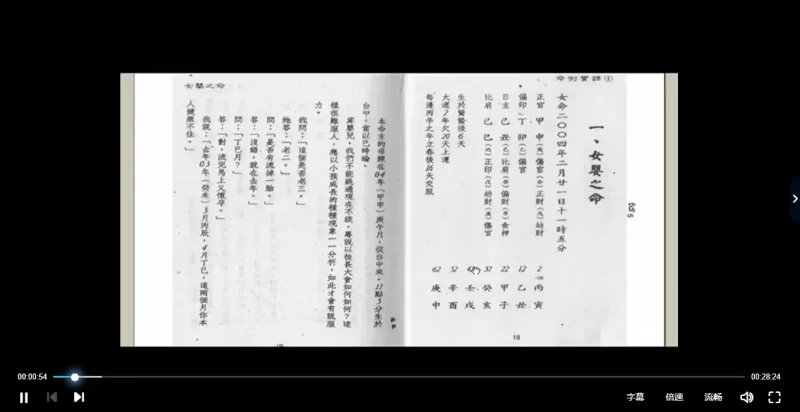 命例實證①
一、女嬰之命
女命二〇〇四年二月廿一日十一時五分
正官 甲 申(庚)傷官(壬)正財(戊)劫財
偏印 丁 卯(乙)偏官
日主 己 丑(己)比肩(癸)偏財(辛)食神
比肩 己 巳(丙)正印(戊)劫財(庚)傷官
生於驚蟄後6天
大運2年欠20天上運
每逢丙辛之年立春後16天交脫
2 丙寅
12 乙丑
22 甲子
32 癸亥
42 壬戌
52 辛酉
62 庚申
18
女嬰之命
本命主的母親在04年(甲申)庚午月,從台中來。11點5分生於
台中,當以巳時論。
算嬰兒,我們不能跳過現在不談,專說以後長大會如何如何?這
樣很難服人,應以小孩成長的種種現象一一分析,如此才會有說服
力。
我問:「這個是否老三。」
她答:「老二。」
問:「是否有流掉一胎。」
答:「沒錯,就在去年。」
問:「丁巳月?」
答:「對,流完馬上又懷孕。」
我說:「去年03年(癸未)3月丙辰,4月丁巳,這兩個月你本
人健康不佳。」
00:00:54
00:28:24
字幕
倍速
流畅